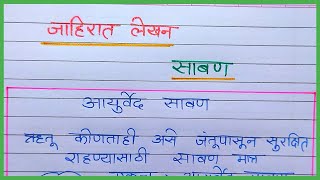 जाहिरात लेखन
साबण
आयुर्वेद साबण
ऋतू कोणताही असे जंतूपासून सुरक्षित
राहण्यासाठी साबण मल